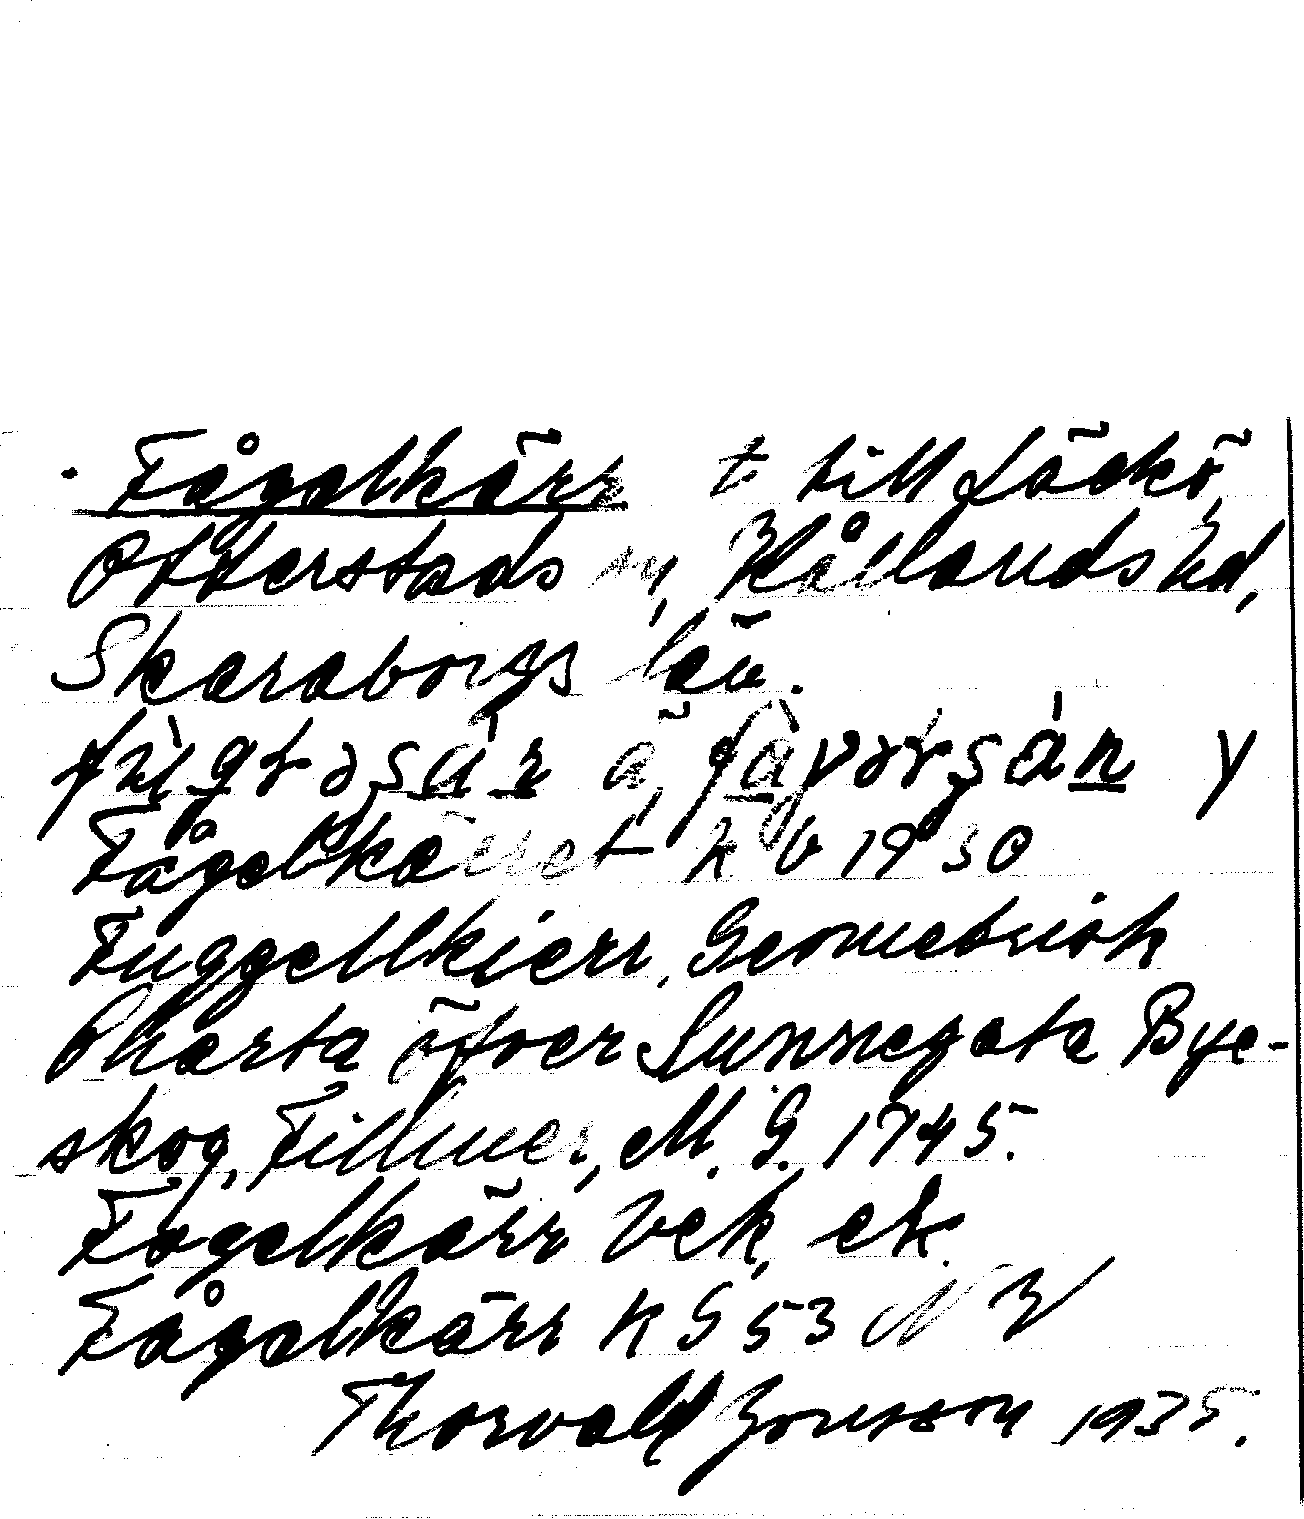 Fågelkärr t till Läckö,
Otterstads sn, Kållands hd,
Skaraborgs län.
Fågelkäret k b 1930
Fuggellkierr, Geometrisk
Charta öfver Sunnegata Bye-
skog, Fillmer, M. G. 1745.
Fogelkärr Vek, ek
Fågelkärr KG 53 NV
Thorvald Jonsson 1935.